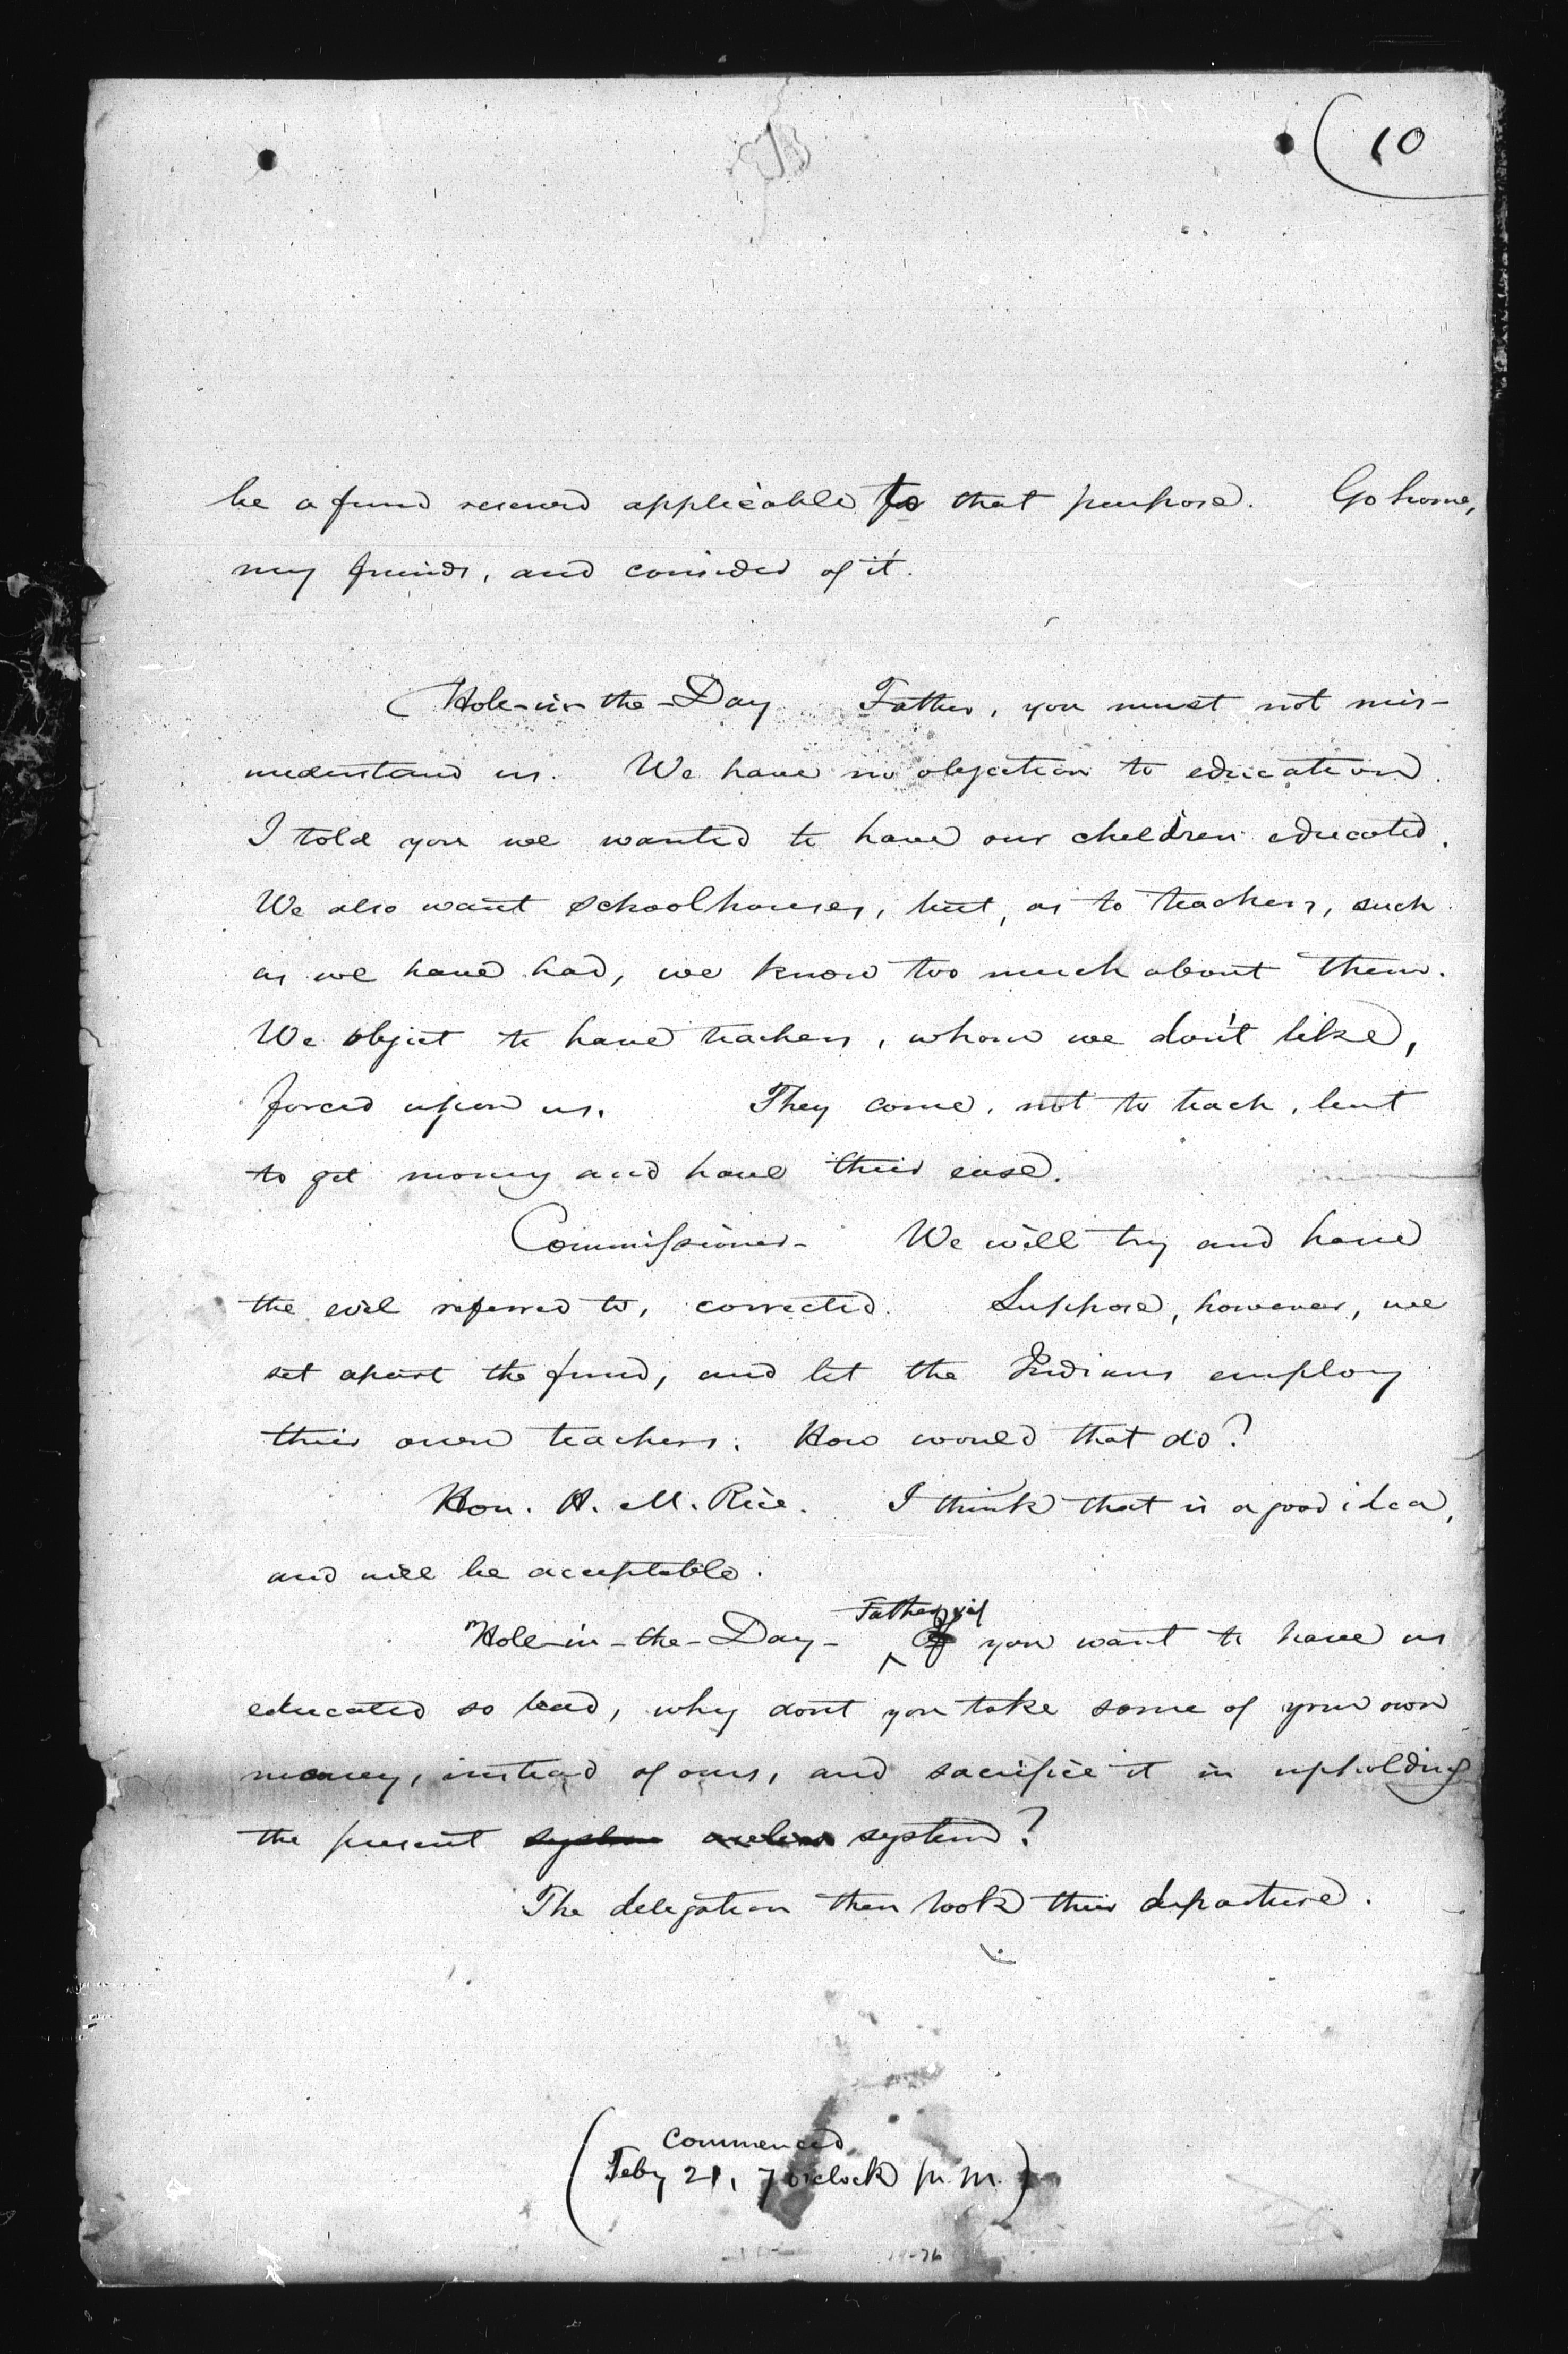 10
be a fund reserved applicable to that purpose. Go home,
my friends, and consider of it.
Hole-in-the-Day Father, you must not mis-
understand us. We have no objection to education.
I told you we wanted to have our children educated.
We also want schoolhouses, but, as to teachers, such
as we have had, we know too much about them.
We object to have teachers, whom we don't like,
forced upon us. They come, not to teach, but
to get money and have their ease.
Commissioner- We will try and have
the evil referred to, corrected. Suppose, however, we
set apart the fund, and let the Indians employ
their own teachers. How would that do?
Hon. H. M. Rice. I think that is a good idea,
and will be acceptable.
Father, if
Hole-in-the-Day- ^ If you want to have us
educated so bad, why dont you take some of your own
money, instead of ours, and sacrifice it in upholding
the present system system?
The delegation then took their departure.
(Commenced
Feby 21, 7 o'clock p. m.)